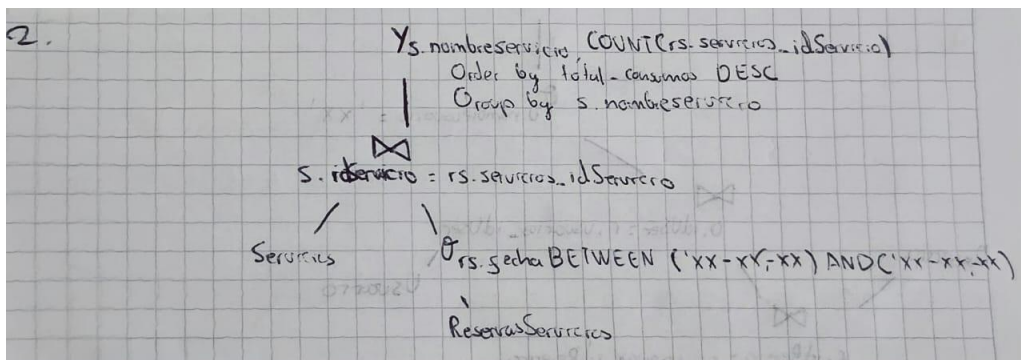 2.
γ s.nombreservicio, COUNT(rs.servicios_idServicio)
Order by total-consumos DESC
Group by s.nombreservicio
⋈
s.idservicio = rs.servicios_idServicio
Servicios
σ rs.fecha BETWEEN ('xx-xx-xx) AND ('xx-xx-xx)
ReservasServicios